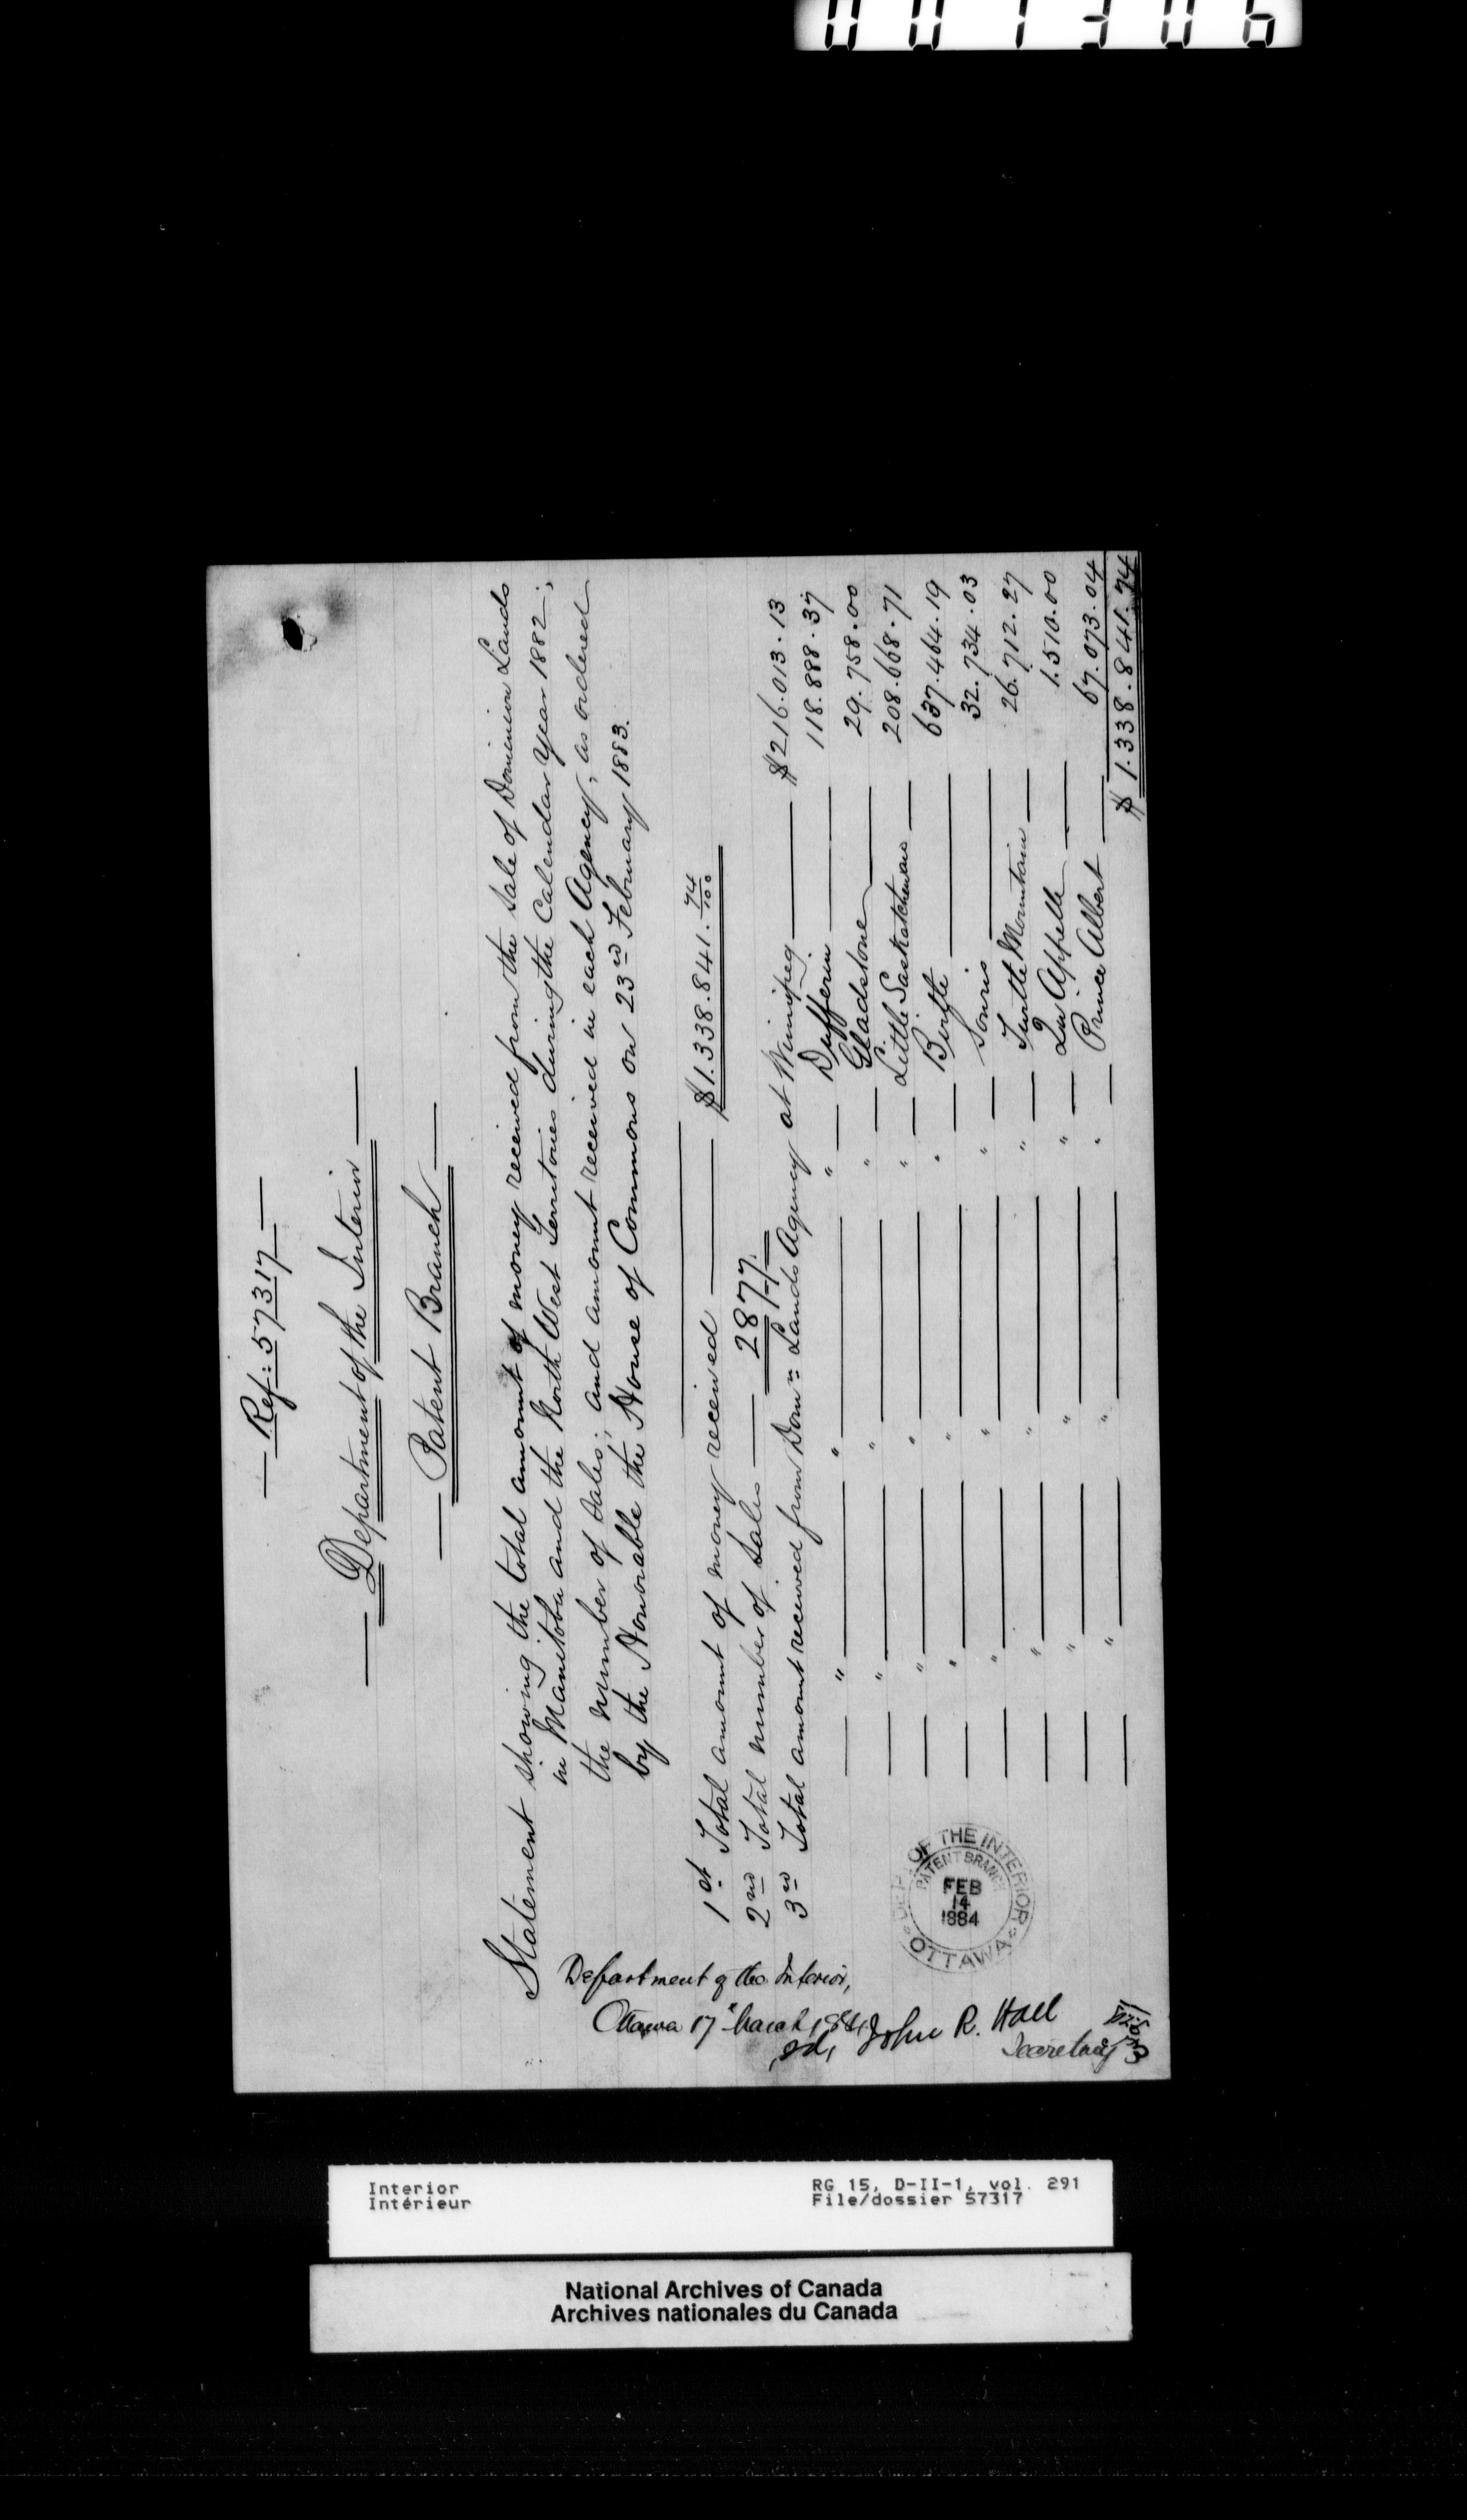 001306
Ref: 57317
Department of the Interior
Patent Branch
Statement showing the total amount of money received from the sale of Dominion Lands
in Manitoba and the North West Territories during the Calendar Year 1882;
the number of sales; and amount received in each Agency, as ordered
by the Honorable the House of Commons on 23rd February 1883.
1st Total amount of money received — $1.338.841. 74/100
2nd Total number of sales — 2877.
3rd Total amount received from Domn Lands Agency at Winnipeg — $216.013.13
— " — " — " — Dufferin — 118.888.37
— " — " — " — Gladstone — 29.758.00
— " — " — " — Little Saskatchewan — 208.668.71
— " — " — " — Birtle — 637.464.19
— " — " — " — Souris — 32.734.03
— " — " — " — Turtle Mountain — 26.712.27
— " — " — " — Qu Appelle — 1.510.00
— " — " — " — Prince Albert — 67.073.04
$1.338.841.74
DEPT. OF THE INTERIOR
PATENT BRANCH
FEB
14
1884
OTTAWA
Department of the Interior,
Ottawa 17th March 1884
sd, John R. Hall
Secretary
Interior
Intérieur
RG 15, D-II-1, vol. 291
File/dossier 57317
National Archives of Canada
Archives nationales du Canada